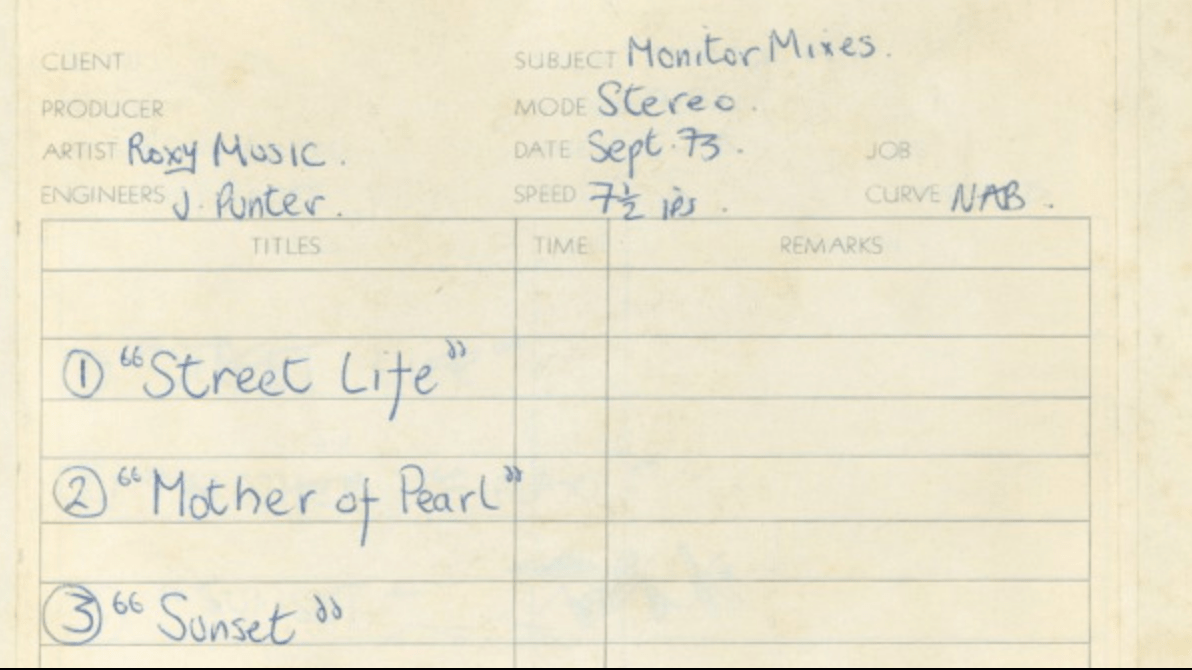 CLIENT SUBJECT Monitor Mixes.
PRODUCER MODE Stereo.
ARTIST Roxy Music. DATE Sept. 73. JOB
ENGINEERS J. Punter. SPEED 7½ ips. CURVE NAB.
TITLES TIME REMARKS
① "Street Life"
② "Mother of Pearl"
③ "Sunset"